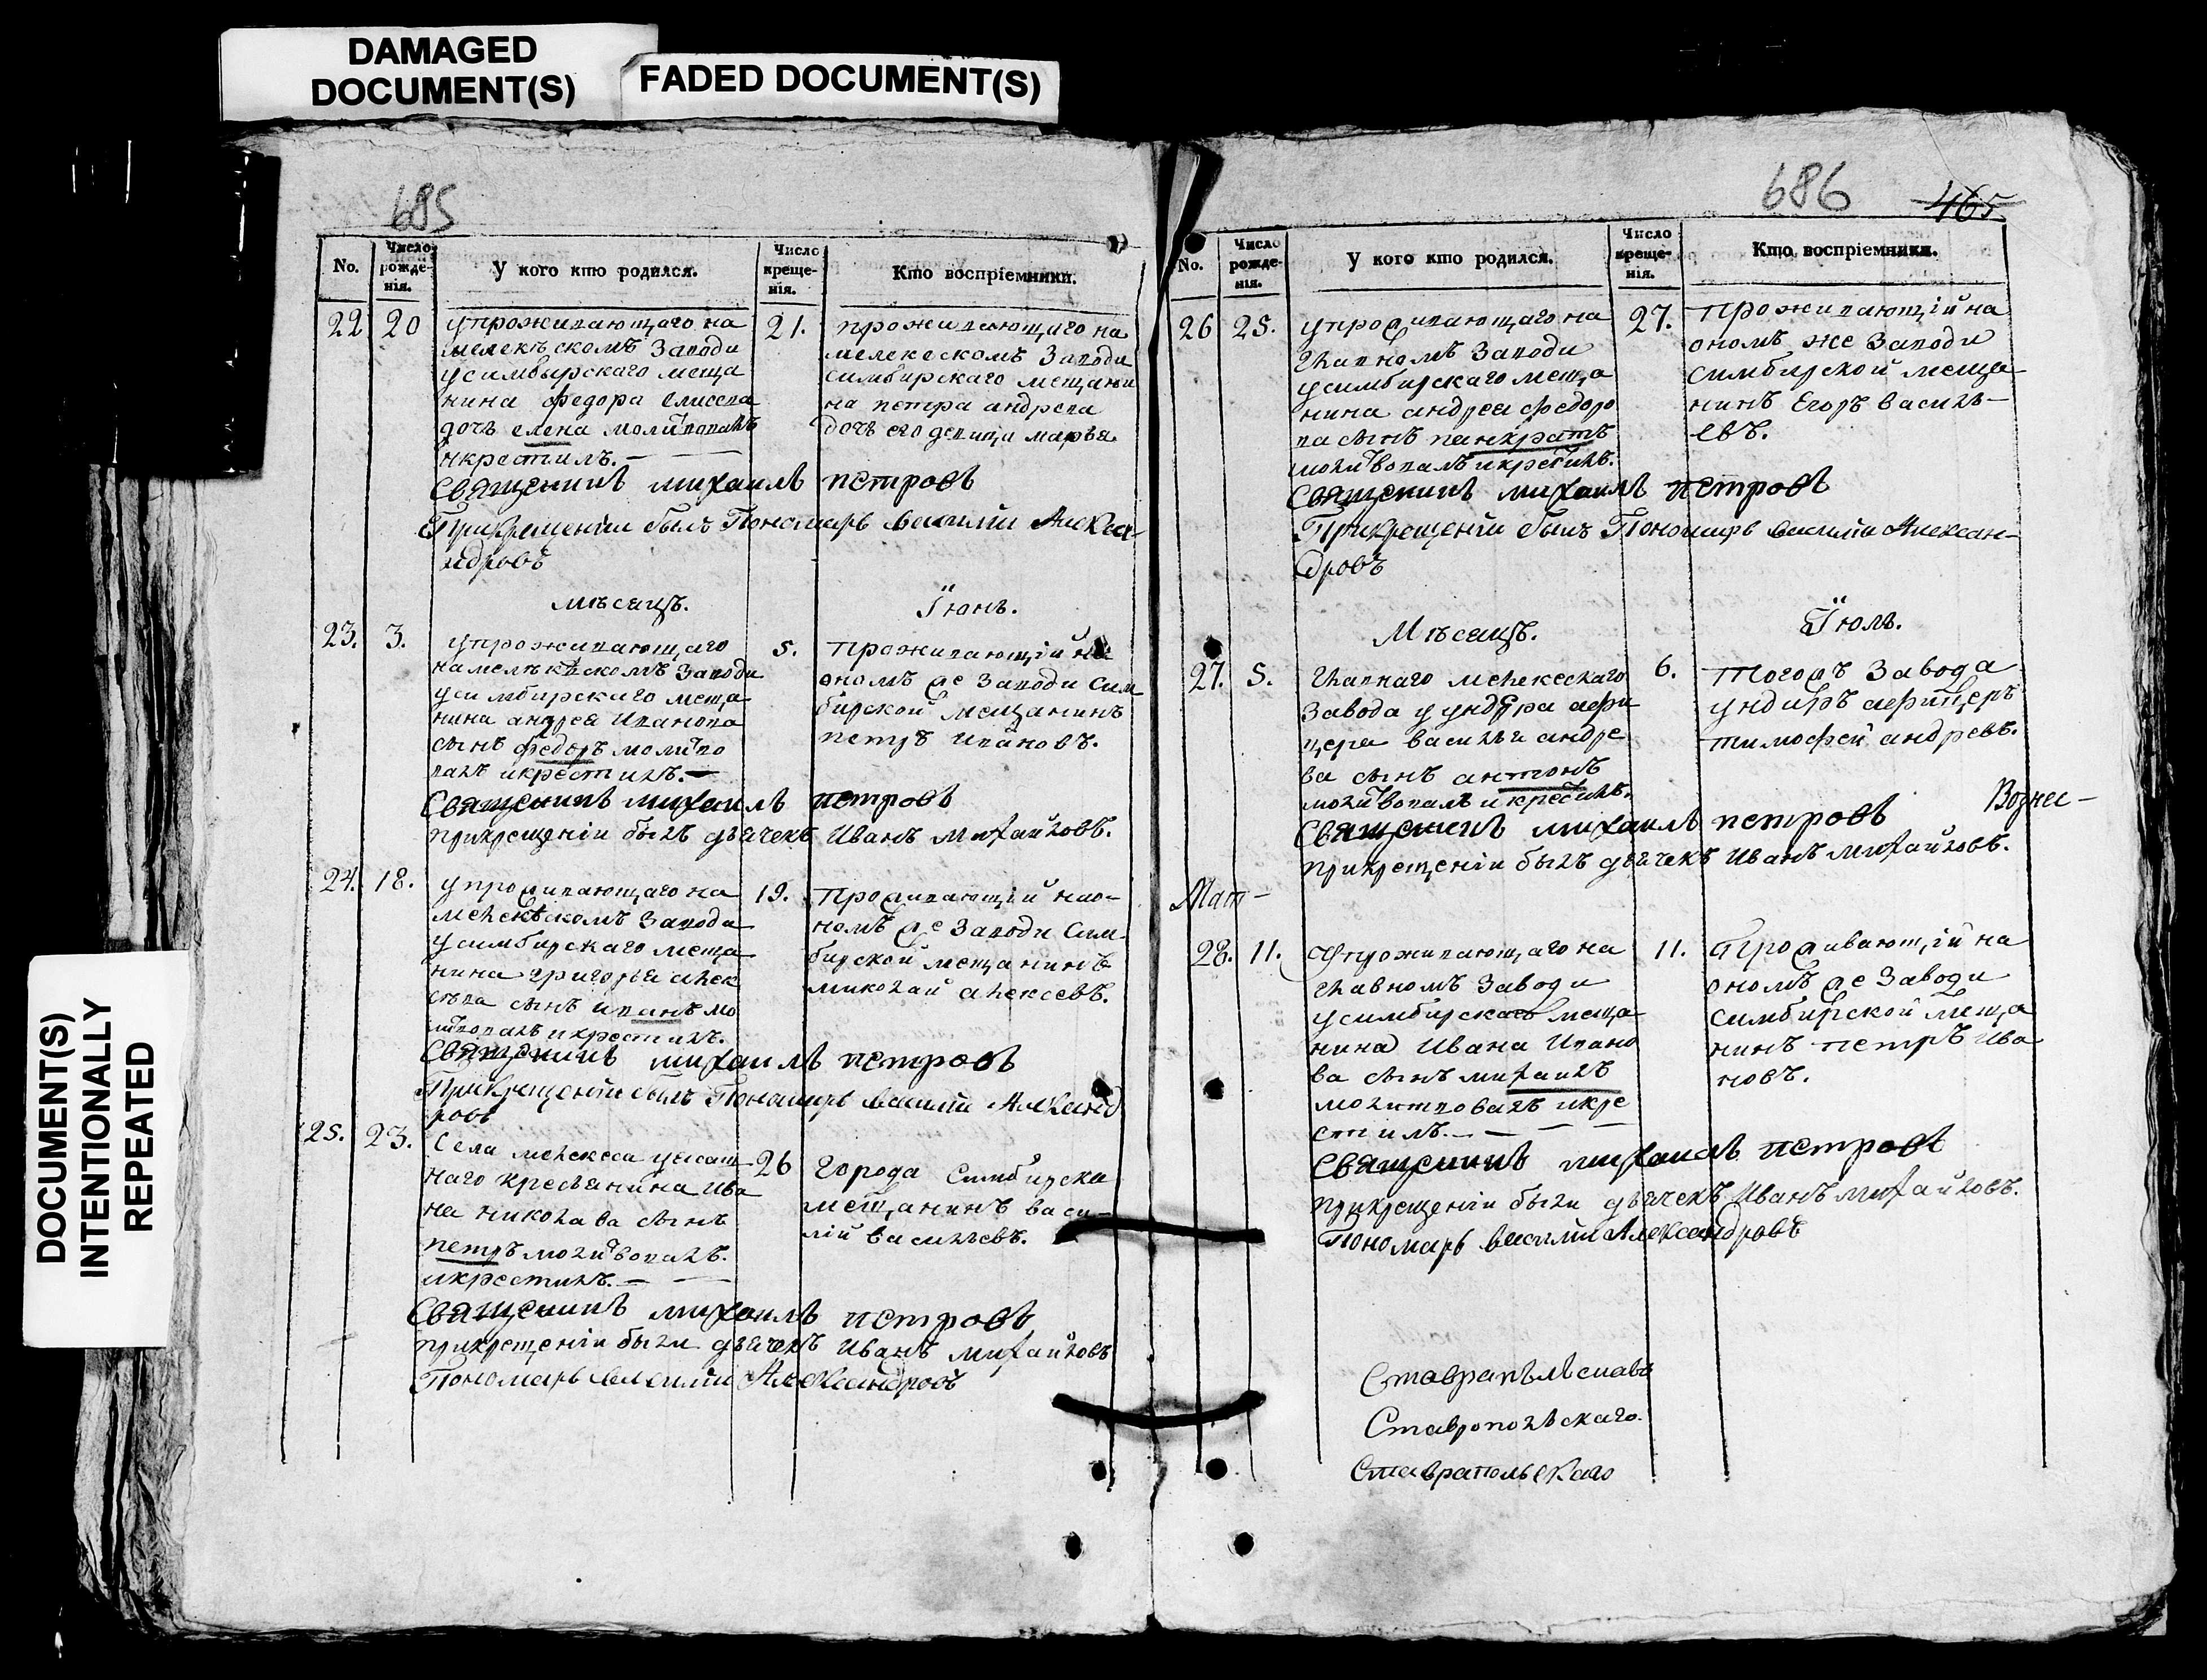 DAMAGED
DOCUMENT(S)
FADED DOCUMENT(S)
DOCUMENT(S)
INTENTIONALLY
REPEATED
685
No.
Число рожде-нія.
У кого кто родился.
Число креще-нія.
Кто воспріемники.
22
20
упроживающаго на
мелекъскомъ Заводи
усимбырскаго меща
нина федора елисева
дочь елена молитвовалъ
икрестилъ.—
21.
проживающаго на
мелекескомъ Заводи
симбирскаго мещани
на петра андрева
дочь его девица марья
Священникъ михаилъ петровъ
Прикрещеніи былъ Пономарь василій Алекса-
ндровъ
мѣсецъ.
Іюнь.
23.
3.
упроживающаго
на мелъкѣскомъ Заводи
усимбирскаго меща
нина андрея иванова
сынъ федоръ молитво
валъ икрестилъ.—
5.
проживающій на
ономъ же Заводи Сим
бирской мещанинъ
петръ ивановъ.
Священникъ михаилъ петровъ
прикрещеніи былъ дьячекъ Иванъ михайловъ.
24.
18.
упроживающаго на
мелекѣскомъ Заводи
усимбирскаго меща
нина григорья алек
сѣва сынъ иванъ мо
литвовалъ икрестилъ.
19.
проживающій нао-
номъ же Заводи Сим
бирской мещанинъ
миколай алексевъ.
Священникъ михаилъ петровъ
Прикрещеніи былъ Пономарь василій Александ
ровъ
25.
23.
Села мелекеса уясаш
наго кресьянина Ива
на никола ва сынъ
петръ молитвовалъ.
икрестилъ.—
26
города Симбирска
мещанинъ васи-
лій васильевъ.
Священникъ михаилъ петровъ
прикрещеніи были дьячекъ Иванъ михайловъ
Пономарь василій Александровъ
686
465
No.
Число рожде-нія.
У кого кто родился.
Число креще-нія.
Кто воспріемники.
26
25.
упроживающаго на
главномъ Заводи
усимбирскаго меща
нина андрея федоро
ва сынъ панкратъ
молитвовалъ икрестилъ.
27.
проживающій на
ономъ же Заводи
симбирской меща
нинъ Егоръ василь—
евъ.
Священникъ михаилъ петровъ
Прикрещеніи былъ Пономарь василій Алексан-
дровъ
Мѣсецъ.
Іюль.
27.
5.
главнаго мелекескаго
Завода у ундера афи
цера василья андре
ва сынъ антонъ
молитвовалъ икрестилъ.
6.
тогожъ Завода
ундиръ афицеръ
тимофей андревъ.
Вознес—
Священникъ михаилъ петровъ
прикрещеніи былъ дьячекъ Иванъ михайловъ.
Мат—
28.
11.
Упроживающаго на
главномъ Заводи
усимбирскаго меща
нина Ивана Ивано
ва сынъ михаилъ
молитвовалъ икре
стилъ.— — — —
11.
Проживающій на
ономъ же Заводи
симбирской меща
нинъ петръ Ива
новъ.
Священникъ михаилъ петровъ
прикрещеніи были дьячекъ Иванъ михайловъ.
Пономарь василій Александровъ
Ставропольскаго.
Ставрапольскаго